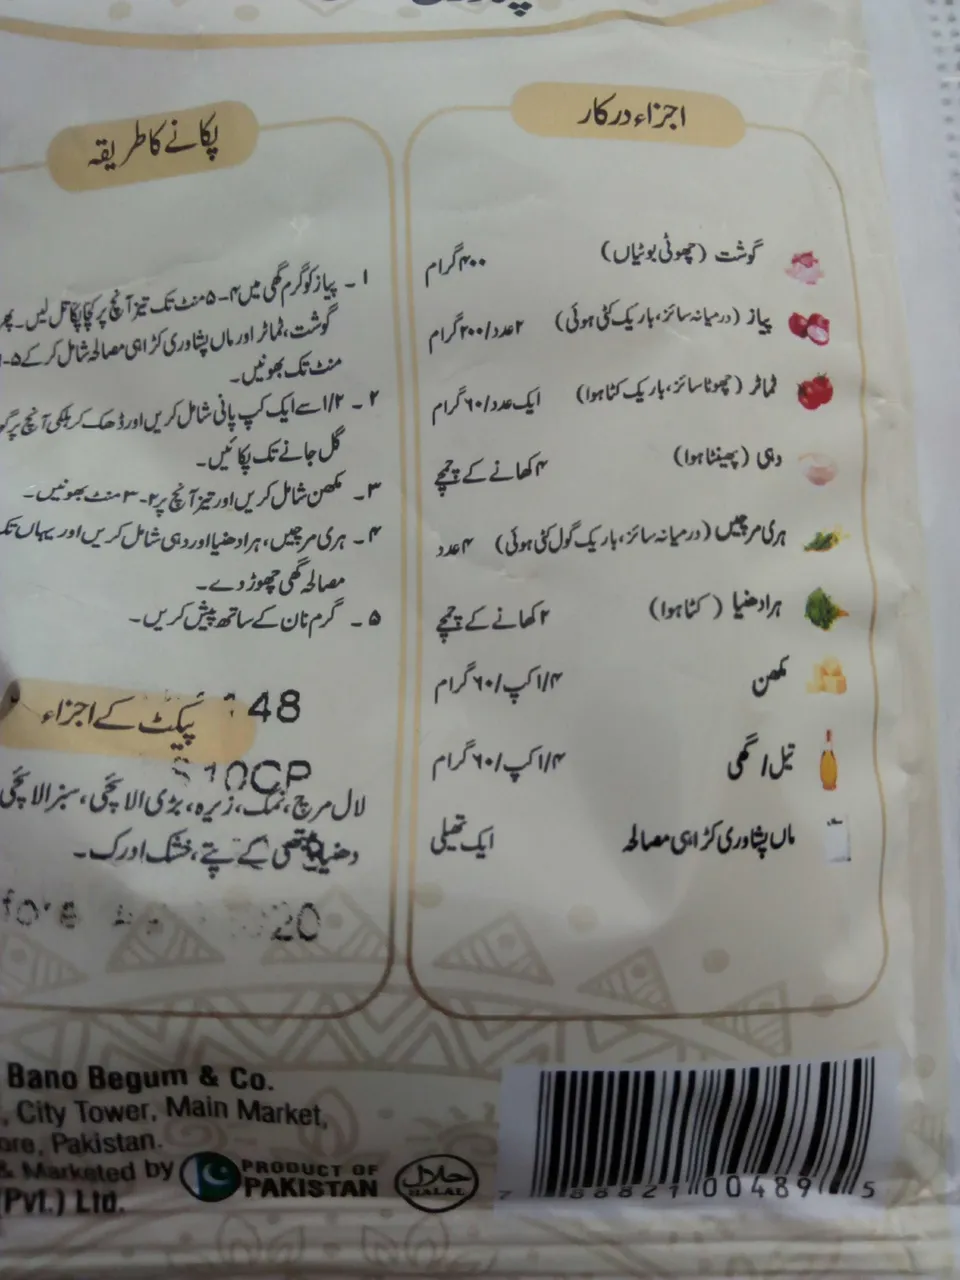 اجزاء درکار
گوشت (چھوٹی بوٹیاں) ۴۰۰ گرام
پیاز (درمیانہ سائز، باریک کٹی ہوئی) ۲ عدد/۲۰۰ گرام
ٹماٹر (چھوٹا سائز، باریک کٹا ہوا) ایک عدد/۶۰ گرام
دہی (پھینٹا ہوا) ۴ کھانے کے چمچے
ہری مرچیں (درمیانہ سائز، باریک گول کٹی ہوئی) ۴ عدد
ہرا دھنیا (کٹا ہوا) ۲ کھانے کے چمچے
مکھن ۱/۴ کپ/۶۰ گرام
تیل/گھی ۱/۴ کپ/۶۰ گرام
ماں پشاوری کڑاہی مصالحہ ایک تھیلی
پکانے کا طریقہ
۱ ۔ پیاز کو گرم گھی میں ۴-۵ منٹ تک تیز آنچ پر کچا پکا تل لیں۔ پھر
گوشت، ٹماٹر اور ماں پشاوری کڑاہی مصالحہ شامل کر کے ۵-
منٹ تک بھونیں۔
۲ ۔ ۱/۲ سے ایک کپ پانی شامل کریں اور ڈھک کر ہلکی آنچ پر
گل جانے تک پکائیں۔
۳ ۔ مکھن شامل کریں اور تیز آنچ پر ۲-۳ منٹ بھونیں۔
۴ ۔ ہری مرچیں، ہرا دھنیا اور دہی شامل کریں اور یہاں تک
مصالحہ گھی چھوڑ دے۔
۵ ۔ گرم نان کے ساتھ پیش کریں۔
48
پیکٹ کے اجزاء
10CP
لال مرچ، نمک، زیرہ، بڑی الائچی، سبز الائچی
دھنیا، میتھی کے پتے، خشک ادرک۔
20
Bano Begum & Co.
, City Tower, Main Market,
ore, Pakistan.
& Marketed by
(Pvt.) Ltd.
PRODUCT OF
PAKISTAN
حلال
HALAL
7 88821 00489 5